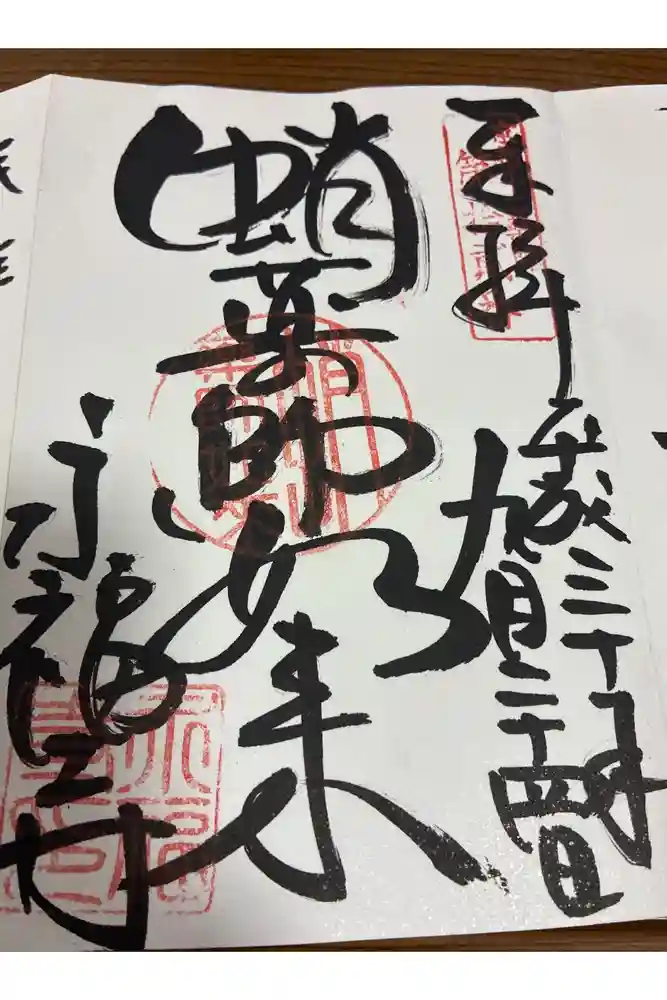 奉拝
平成三十年
九月二十四日
蛸薬師如来
永福寺